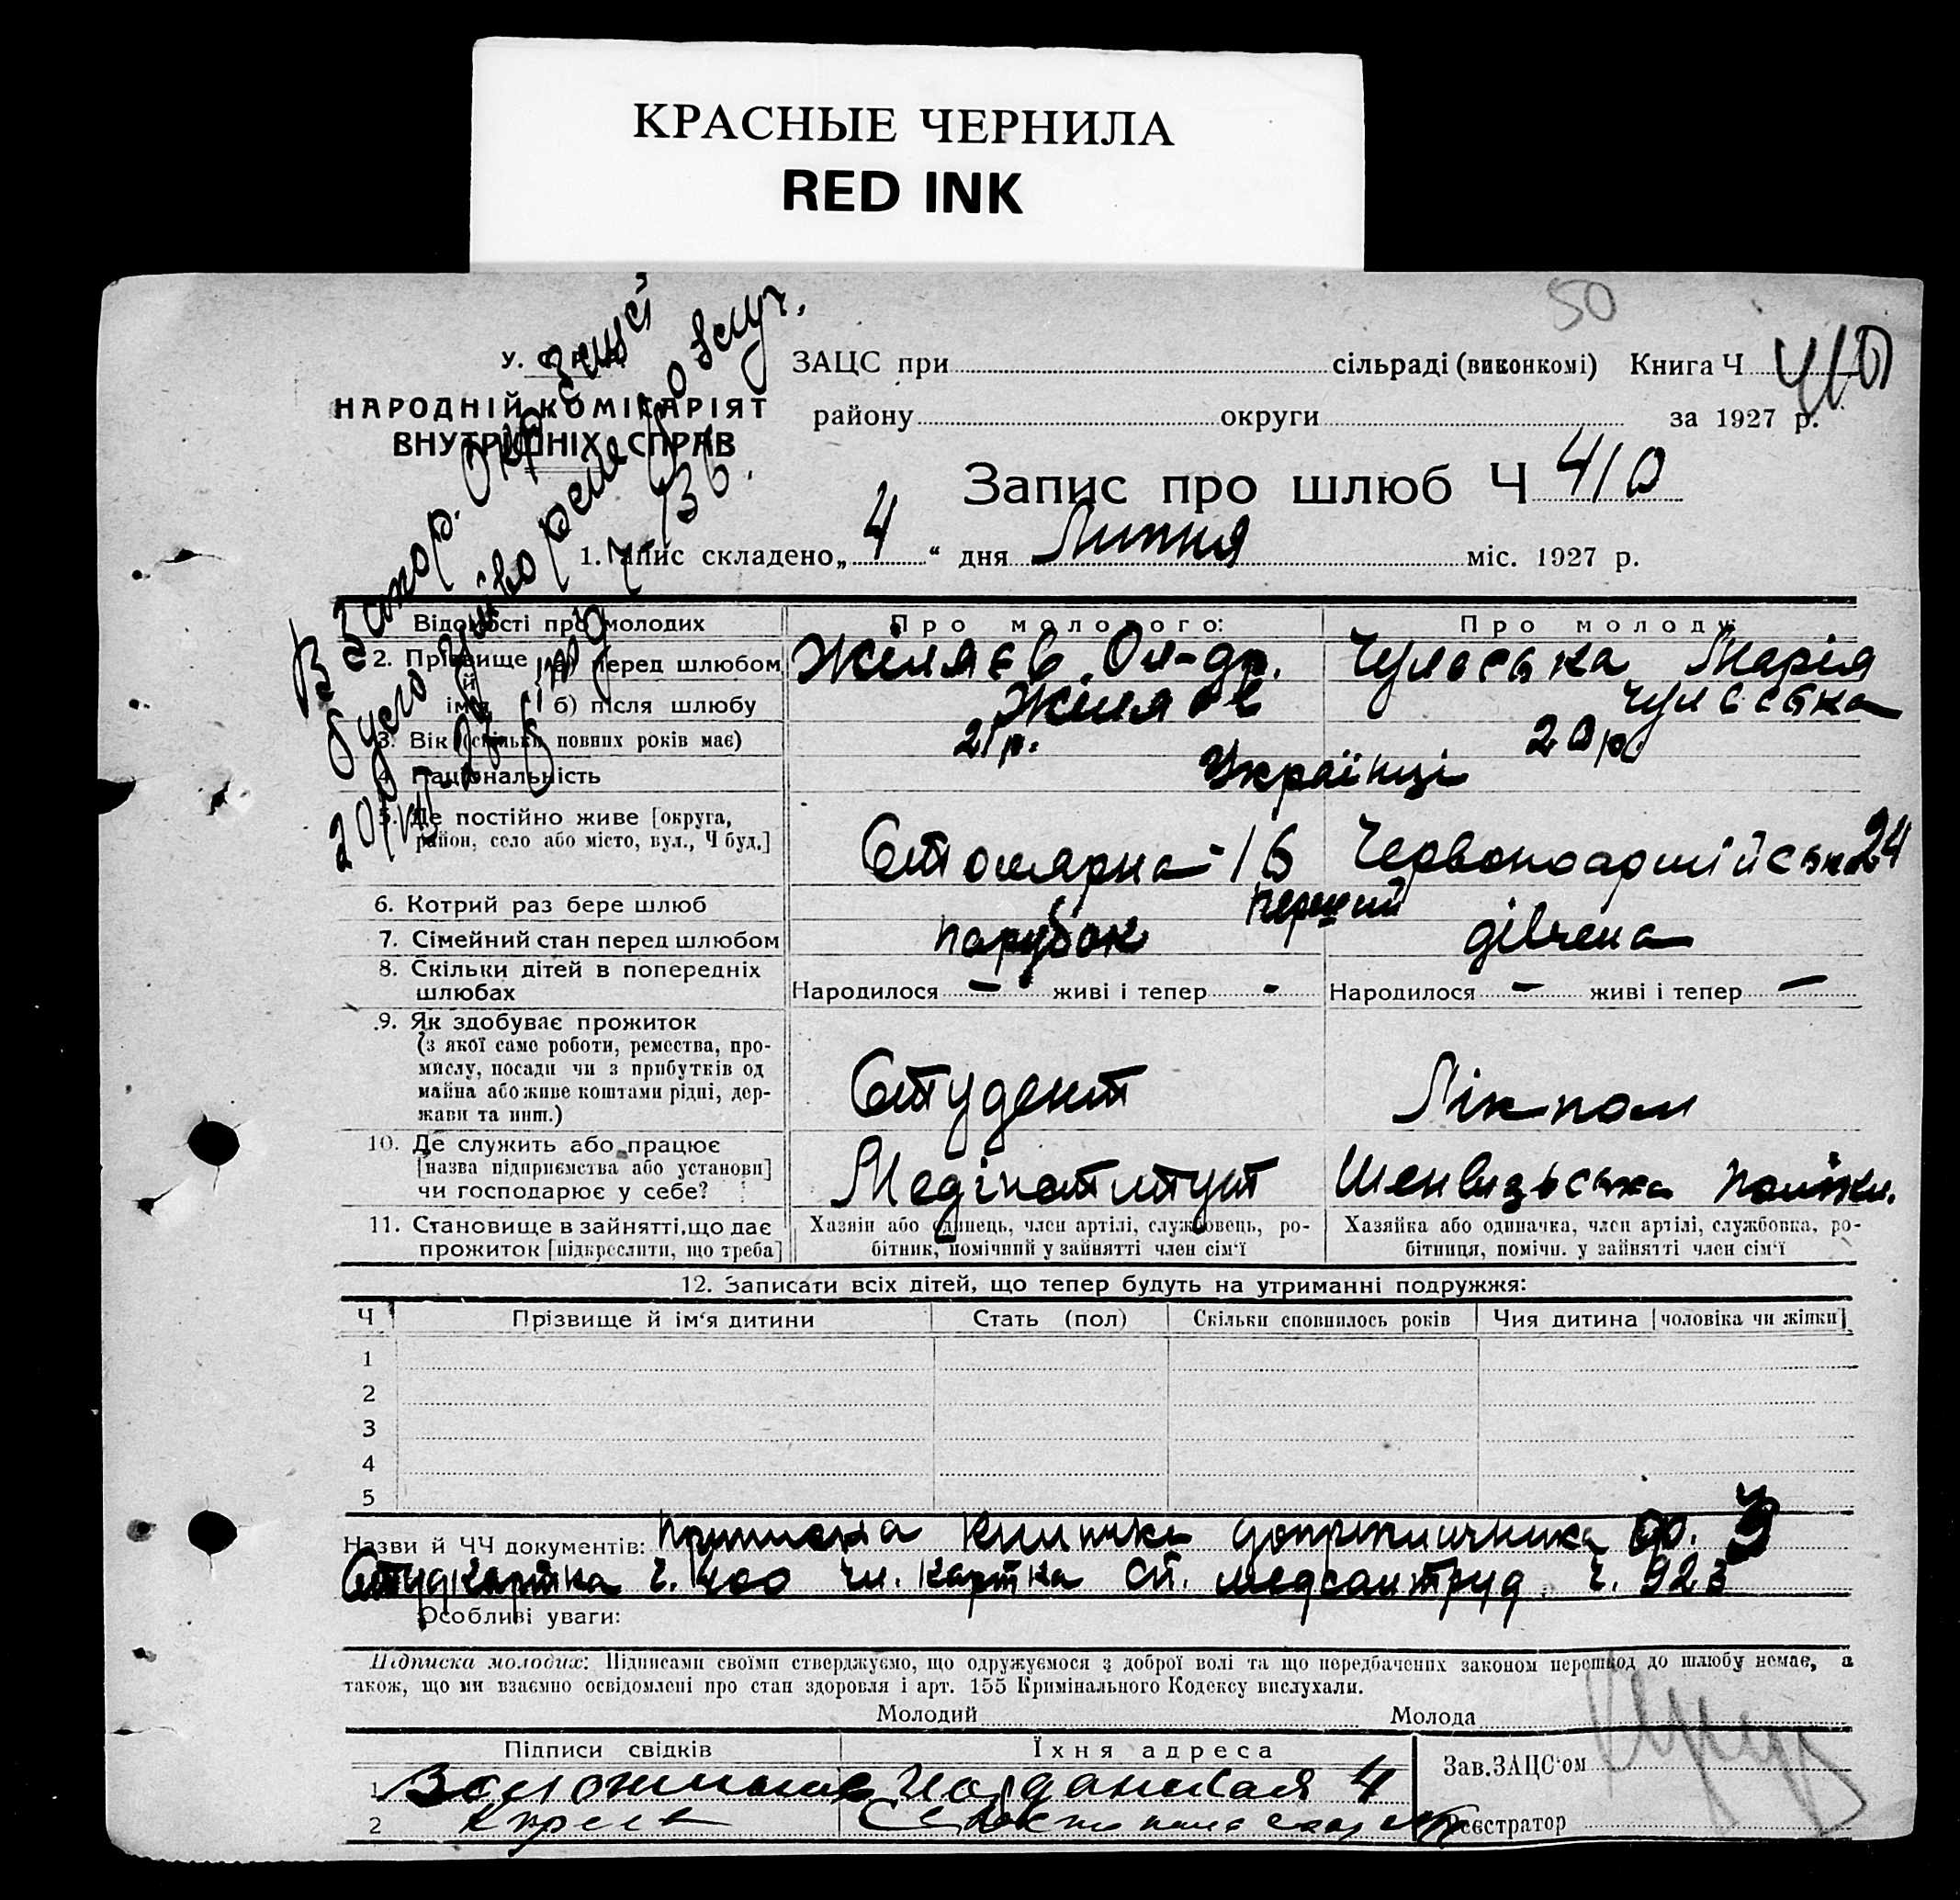 КРАСНЫЕ ЧЕРНИЛА
RED INK
50
У. С. Р. Р.
НАРОДНІЙ КОМІСАРІЯТ
ВНУТРІШНІХ СПРАВ
ЗАЦС при сільраді (виконкомі) Книга Ч 410
району округи за 1927 р.
Запис про шлюб Ч 410
1. Запис складено „4“ дня Липня міс. 1927 р.
Відомості про молодих
Про молодого:
Про молоду:
2. Прізвище й ім'я
а) перед шлюбом Жіляєв Ол-др. Чулаєвська Марія
б) після шлюбу Жиляєв
3. Вік (скільки повних років має) 21 р. 20 р.
4. Національність Українці
5. Де постійно живе [округа,
район, село або місто, вул., Ч буд.]
Столярна - 16 Червоноармійська 24
6. Котрий раз бере шлюб перший
7. Сімейний стан перед шлюбом парубок дівчена
8. Скільки дітей в попередніх
шлюбах
Народилося - живі і тепер - Народилося - живі і тепер -
9. Як здобуває прожиток
(з якої саме роботи, ремества, про-
мислу, посади чи з прибутків од
майна або живе коштами рідні, дер-
жави та инш.)
Студент Лікпом
10. Де служить або працює
[назва підприємства або установи]
чи господарює у себе?
Медінститут
11. Становище в зайнятті, що дає
прожиток [підкреслити, що треба]
Хазяін або одинець, член артілі, службовець, ро-
бітник, помічний у зайнятті член сім'ї
Хазяйка або одиначка, член артілі, службовка, ро-
бітниця, помічн. у зайнятті член сім'ї
12. Записати всіх дітей, що тепер будуть на утриманні подружжя:
Ч Прізвище й ім'я дитини Стать (пол) Скільки сповнилось років Чия дитина [чоловіка чи жінки]
1
2
3
4
5
Назви й ЧЧ документів: книжка допризичника
Студкартка ч. 400 чл. картка сп. медсантруд. ч. 923
Особливі уваги:
Підписка молодих: Підписами своїми стверджуємо, що одружуємося з доброї волі та що передбачених законом перешкод до шлюбу немає, а
також, що ми взаємно освідомлені про стан здоровля і арт. 155 Кримінального Кодексу вислухали.
Молодий Молода
Підписи свідків Їхня адреса
Зав. ЗАЦС'ом
1 4
2
Реєстратор